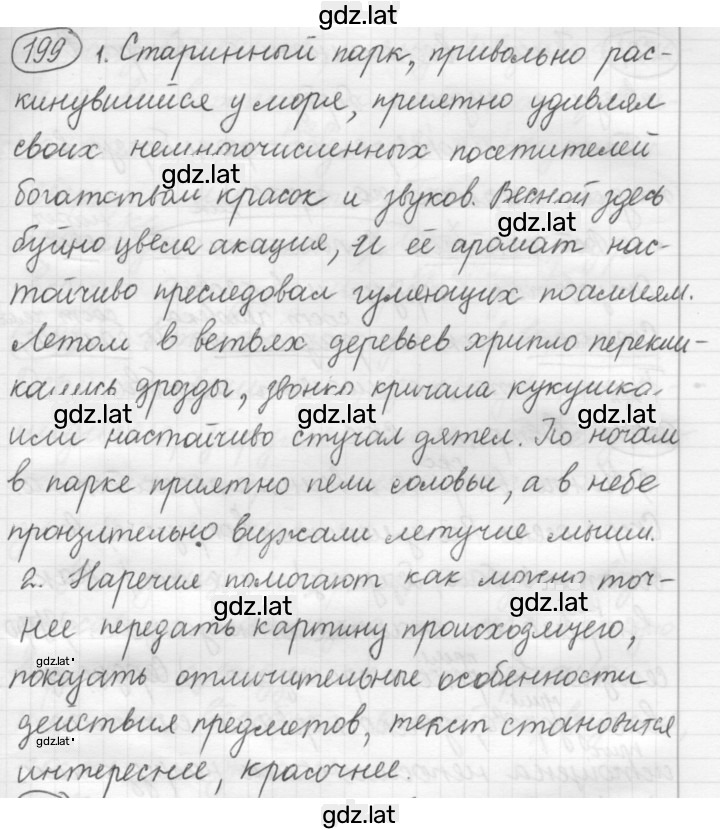 gdz.lat
199 1. Старинный парк, привольно рас-
кинувшийся у моря, приятно удивлял
своих немногочисленных посетителей
gdz.lat
богатством красок и звуков. Весной здесь
gdz.lat
буйно цвела акация, и её аромат нас-
тойчиво преследовал гуляющих по аллеям.
Летом в ветвях деревьев хрипло перекли-
кались дрозды, звонко кричала кукушка
gdz.lat gdz.lat gdz.lat
или настойчиво стучал дятел. По ночам
в парке приятно пели соловьи, а в небе
пронзительно визжали летучие мыши.
2. Наречия помогают как можно точ-
gdz.lat gdz.lat
нее передать картину происходящего,
gdz.lat
показать отличительные особенности
действия предметов, текст становится
gdz.lat
интереснее, красочнее.
gdz.lat